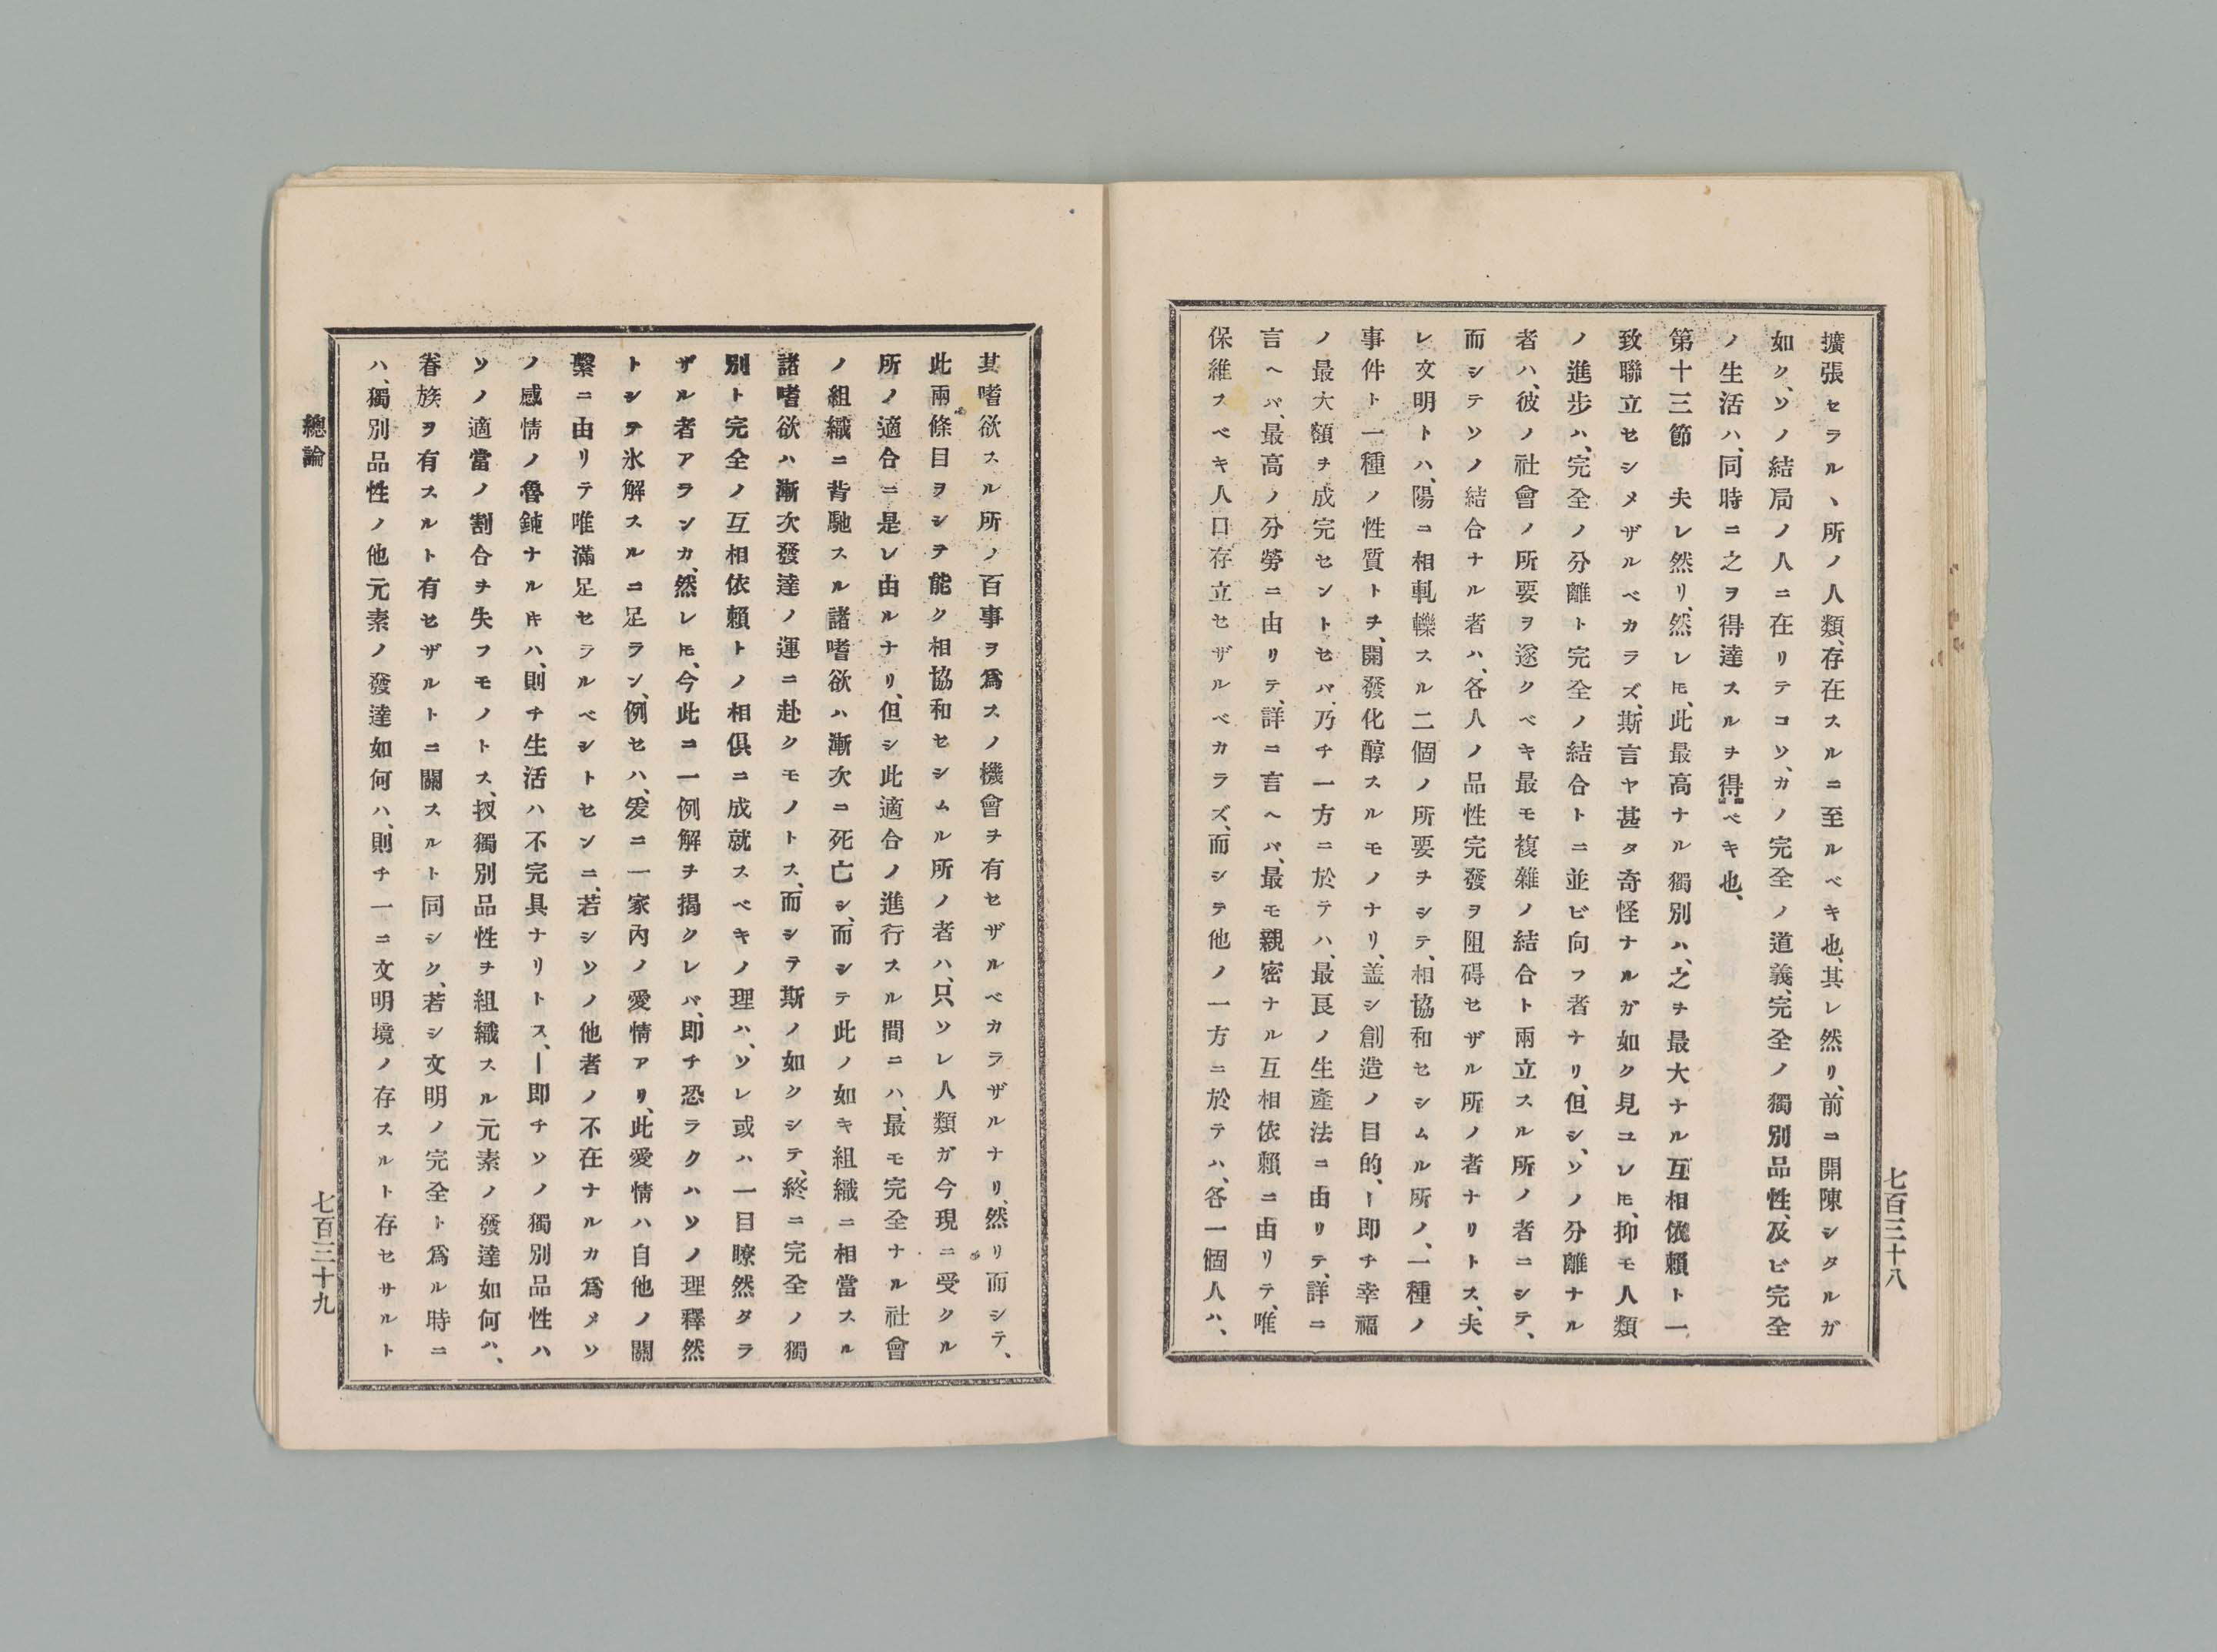 擴張セラルヽ所ノ人類、存在スルニ至ルベキ也、其レ然リ、前ニ開陳シタルガ
如ク、ソノ結局ノ人ニ在リテコソ、カノ完全ノ道義、完全ノ獨別品性、及ビ完全
ノ生活ハ、同時ニ之ヲ得達スルヲ得ベキ也、
第十三節　夫レ然リ、然レ𪜈、此最高ナル獨別ハ、之ヲ最大ナル互相依賴ト一
致聯立セシメザルベカラズ、斯言ヤ甚タ奇怪ナルガ如ク見ユレ𪜈、抑モ人類
ノ進步ハ、完全ノ分離ト完全ノ結合トニ並ビ向フ者ナリ、但シ、ソノ分離ナル
者ハ、彼ノ社會ノ所要ヲ遂クベキ最モ複雜ノ結合ト兩立スル所ノ者ニシテ、
而シテソノ結合ナル者ハ、各人ノ品性完發ヲ阻碍セザル所ノ者ナリトス、夫
レ文明トハ、陽ニ相軋轢スル二個ノ所要ヲシテ、相協和セシムル所ノ、一種ノ
事件ト一種ノ性質トヲ、開發化醇スルモノナリ、蓋シ創造ノ目的、ー即チ幸福
ノ最大額ヲ成完セントセバ、乃チ一方ニ於テハ、最良ノ生產法ニ由リテ、詳ニ
言ヘバ、最高ノ分勞ニ由リテ、詳ニ言ヘバ、最モ親密ナル互相依賴ニ由リテ、唯
保維スベキ人口存立セザルベカラズ、而シテ他ノ一方ニ於テハ、各一個人ハ、
七百三十八
其嗜欲スル所ノ百事ヲ爲スノ機會ヲ有セザルベカラザルナリ、然リ而シテ、
此兩條目ヲシテ能ク相協和セシムル所ノ者ハ、只ソレ人類ガ今現ニ受クル
所ノ適合ニ是レ由ルナリ、但シ此適合ノ進行スル間ニハ、最モ完全ナル社會
ノ組織ニ背馳スル諸嗜欲ハ漸次ニ死亡シ、而シテ此ノ如キ組織ニ相當スル
諸嗜欲ハ漸次發達ノ運ニ赴クモノトス、而シテ斯ノ如クシテ、終ニ完全ノ獨
別ト完全ノ互相依賴トノ相俱ニ成就スベキノ理ハ、ソレ或ハ一目瞭然タラ
ザル者アランカ、然レ𪜈、今此ニ一例解ヲ揭クレバ、即チ恐ラクハソノ理釋然
トシテ氷解スルニ足ラン、例セハ、爰ニ一家內ノ愛情アリ、此愛情ハ自他ノ關
繫ニ由リテ唯滿足セラルベシトセンニ、若シソノ他者ノ不在ナルカ爲メソ
ノ感情ノ魯鈍ナル𪜈ハ、則チ生活ハ不完具ナリトス、ー即チソノ獨別品性ハ
ソノ適當ノ割合ヲ失フモノトス、扨獨別品性ヲ組織スル元素ノ發達如何ハ、
眷族ヲ有スルト有セザルトニ關スルト同シク、若シ文明ノ完全ト爲ル時ニ
ハ、獨別品性ノ他元素ノ發達如何ハ、則チ一ニ文明境ノ存スルト存セサルト
總論
七百三十九